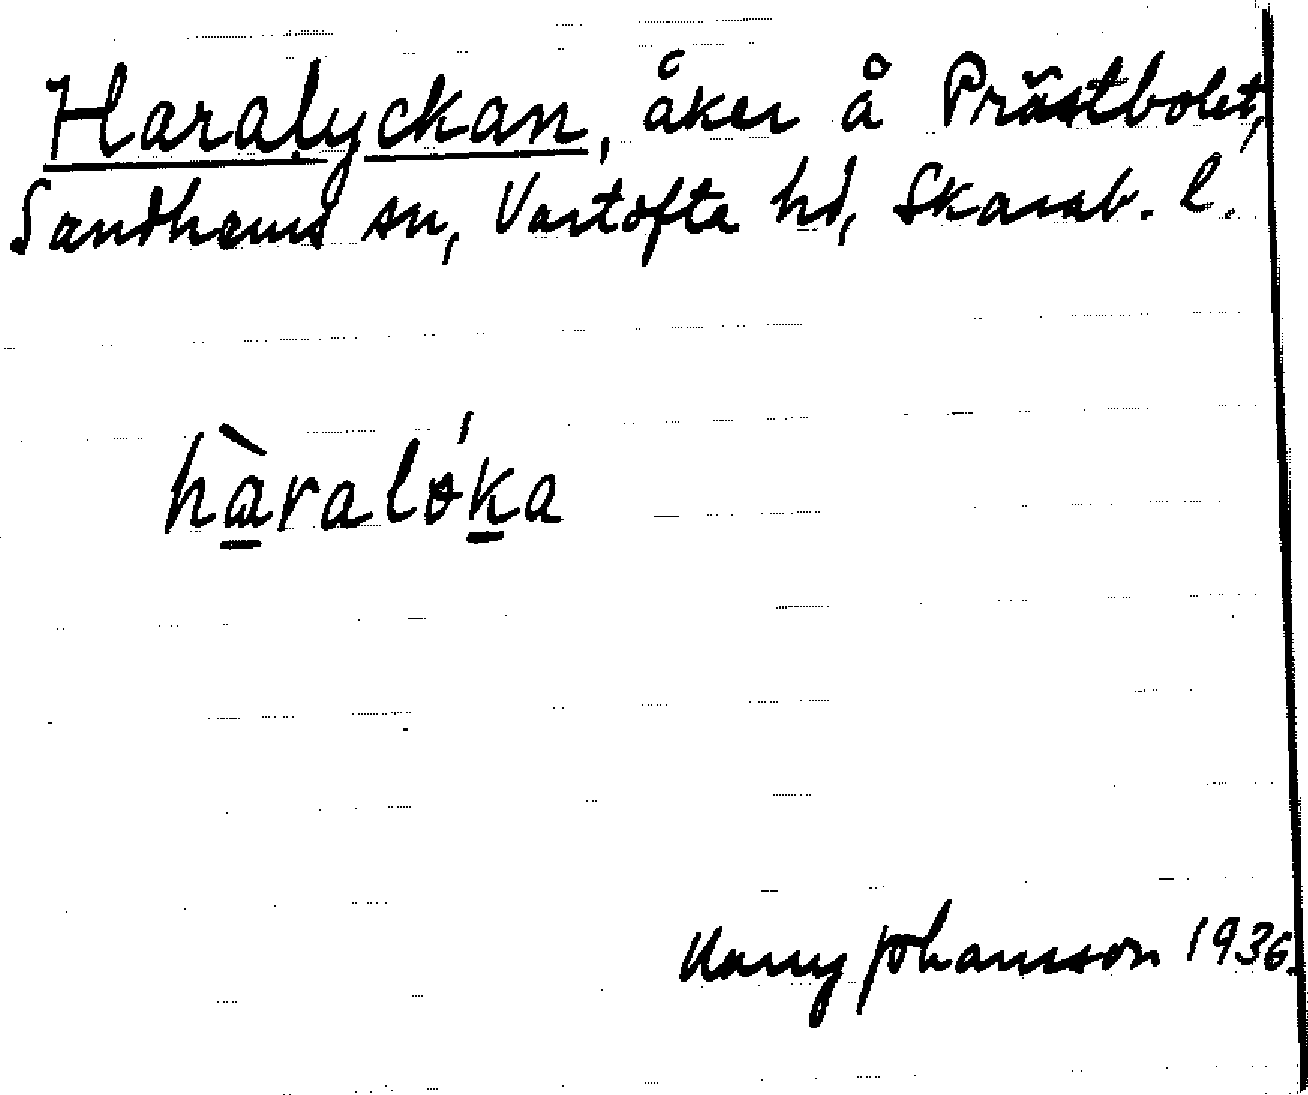 Haralyckan, åker å Prästbolet,
Sandhems sn, Vartofta hd, Skarab. l.
hàralǿka
Harry Johansson 1936.